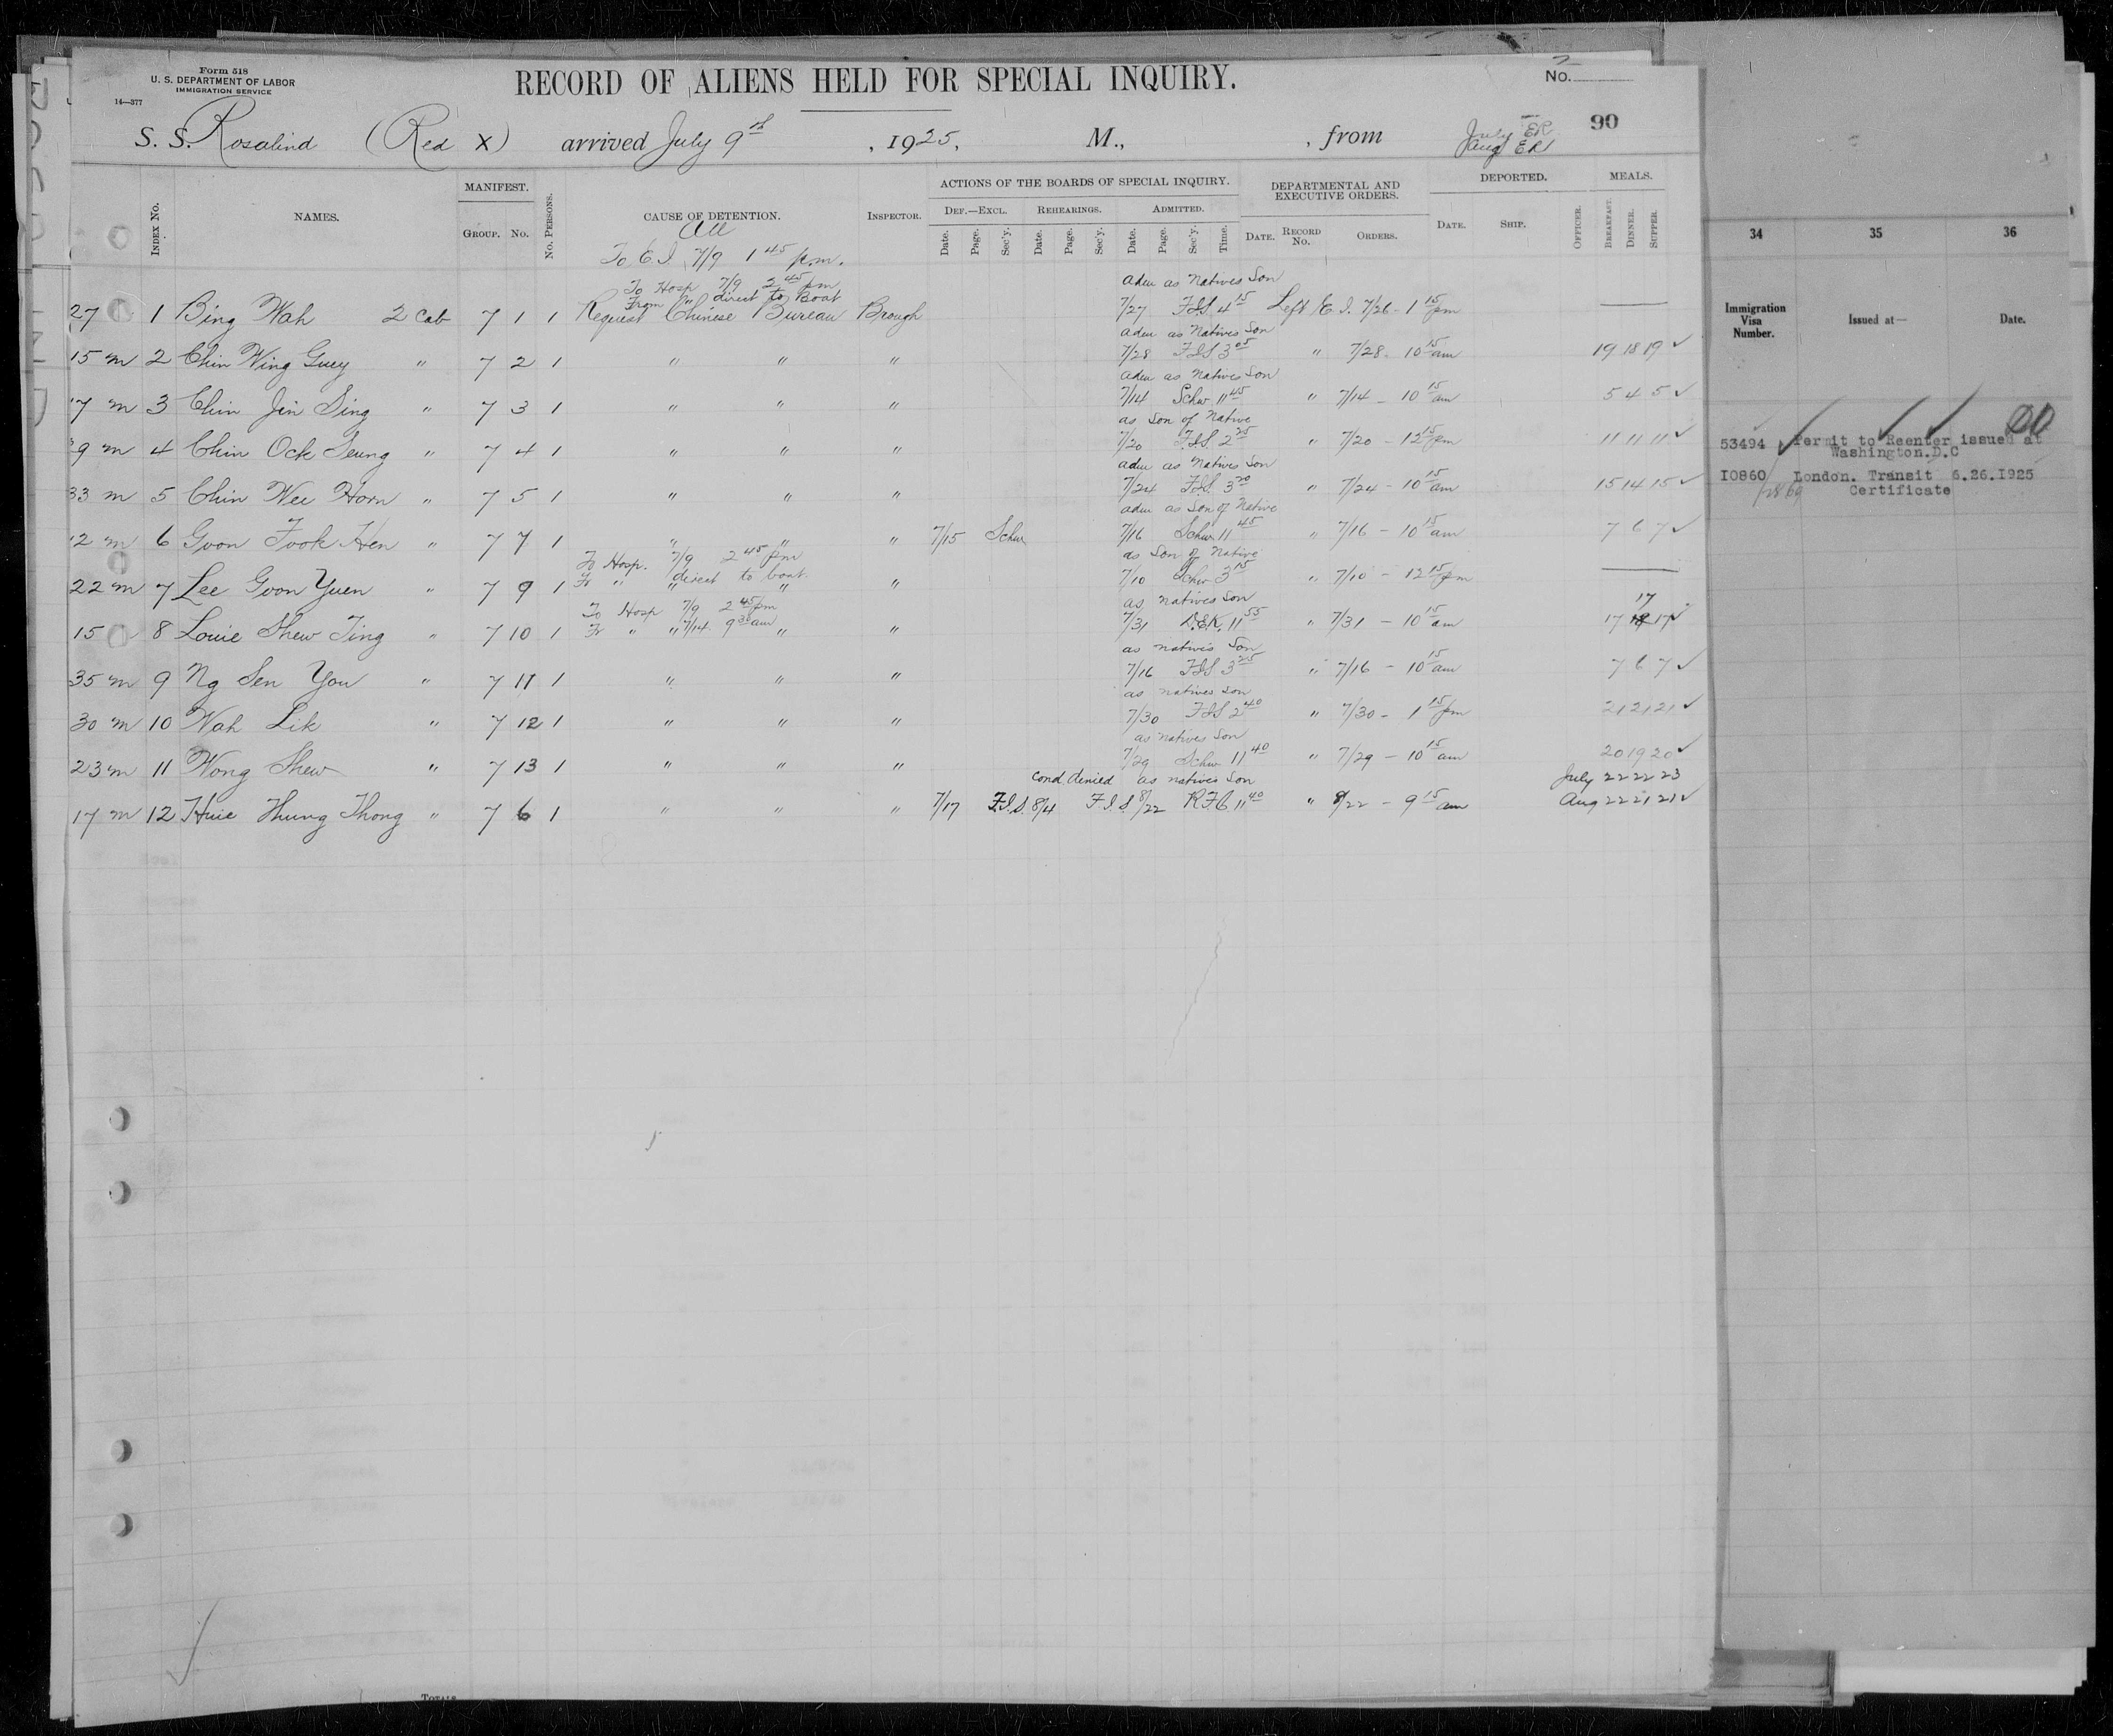 Form 518
U. S. DEPARTMENT OF LABOR
IMMIGRATION SERVICE
14—377
RECORD OF ALIENS HELD FOR SPECIAL INQUIRY.
No. 2
90
S. S. Rosalind (Red X) arrived July 9th, 1925, M., , from
July ER
Aug ER
INDEX No. NAMES. MANIFEST. GROUP. No. No. PERSONS. CAUSE OF DETENTION. INSPECTOR. ACTIONS OF THE BOARDS OF SPECIAL INQUIRY. DEF.—EXCL. Date. Page. Sec'y. REHEARINGS. Date. Page. Sec'y. ADMITTED. Date. Page. Sec'y. Time. DEPARTMENTAL AND EXECUTIVE ORDERS. DATE. RECORD No. ORDERS. DEPORTED. DATE. SHIP. OFFICER. MEALS. BREAKFAST. DINNER. SUPPER.
All
To E.I. 7/9 1 45 p.m.
To Hosp 7/9 2 45 pm adm as Natives Son
From " direct to Boat
27 1 Bing Wah 2 Cab 7 1 1 Request Chinese Bureau Brough 7/27 FIS 4 15 Left E I. 7/26 - 1 15 pm —
adm as Natives Son
15 m 2 Chin Wing Guey " 7 2 1 " " " 7/28 FIS 3 05 " 7/28 - 10 15 am 19 18 19 ✓
adm as Natives Son
17 m 3 Chin Jin Sing " 7 3 1 " " " 7/14 Schw 11 45 " 7/14 - 10 15 am 5 4 5 ✓
as Son of Native
9 m 4 Chin Ock Seung " 7 4 1 " " " 7/20 FIS 2 25 " 7/20 - 12 15 pm 11 11 11 ✓
adm as Natives Son
33 m 5 Chin Wee Horn " 7 5 1 " " " 7/24 FIS 3 20 " 7/24 - 10 15 am 15 14 15 ✓
adm as Son of Native
12 m 6 Goon Fook Hen " 7 7 1 " " " 7/15 Schw 7/16 Schw 11 45 " 7/16 - 10 15 am 7 6 7 ✓
To Hosp. 7/9 2 45 pm as Son of Native
Fr " " direct to boat
22 m 7 Lee Goon Yuen " 7 9 1 " " " 7/10 Schw 3 15 " 7/10 - 12 15 pm —
To Hosp 7/9 2 45 pm as Natives Son
Fr " " 7/14 9 30 am
15 8 Louie Shew Ting " 7 10 1 " " 7/31 D.E.K. 11 55 " 7/31 - 10 15 am 17 17 17 ✓
as natives Son
35 m 9 Ng Sen You " 7 11 1 " " " 7/16 FIS 3 25 " 7/16 - 10 15 am 7 6 7 ✓
as natives son
30 m 10 Wah Lik " 7 12 1 " " " 7/30 FIS 2 40 " 7/30 - 1 15 pm 21 21 21 ✓
as natives Son
23 m 11 Wong Shew " 7 13 1 " " " 7/29 Schw 11 40 " 7/29 - 10 15 am 20 19 20 ✓
Cond. denied as natives son July 22 22 23
17 m 12 Huie Hung Thong " 7 6 1 " " " 7/17 F.I.S. 8/4 F.I.S. 8/22 RFC 11 40 " 8/22 - 9 15 am Aug 22 21 21 ✓
TOTALS
34 35 36
Immigration Visa Number. Issued at— Date.
53494 Permit to Reenter issued at
Washington.D.C
I0860 London. Transit 6.26.I925
Certificate